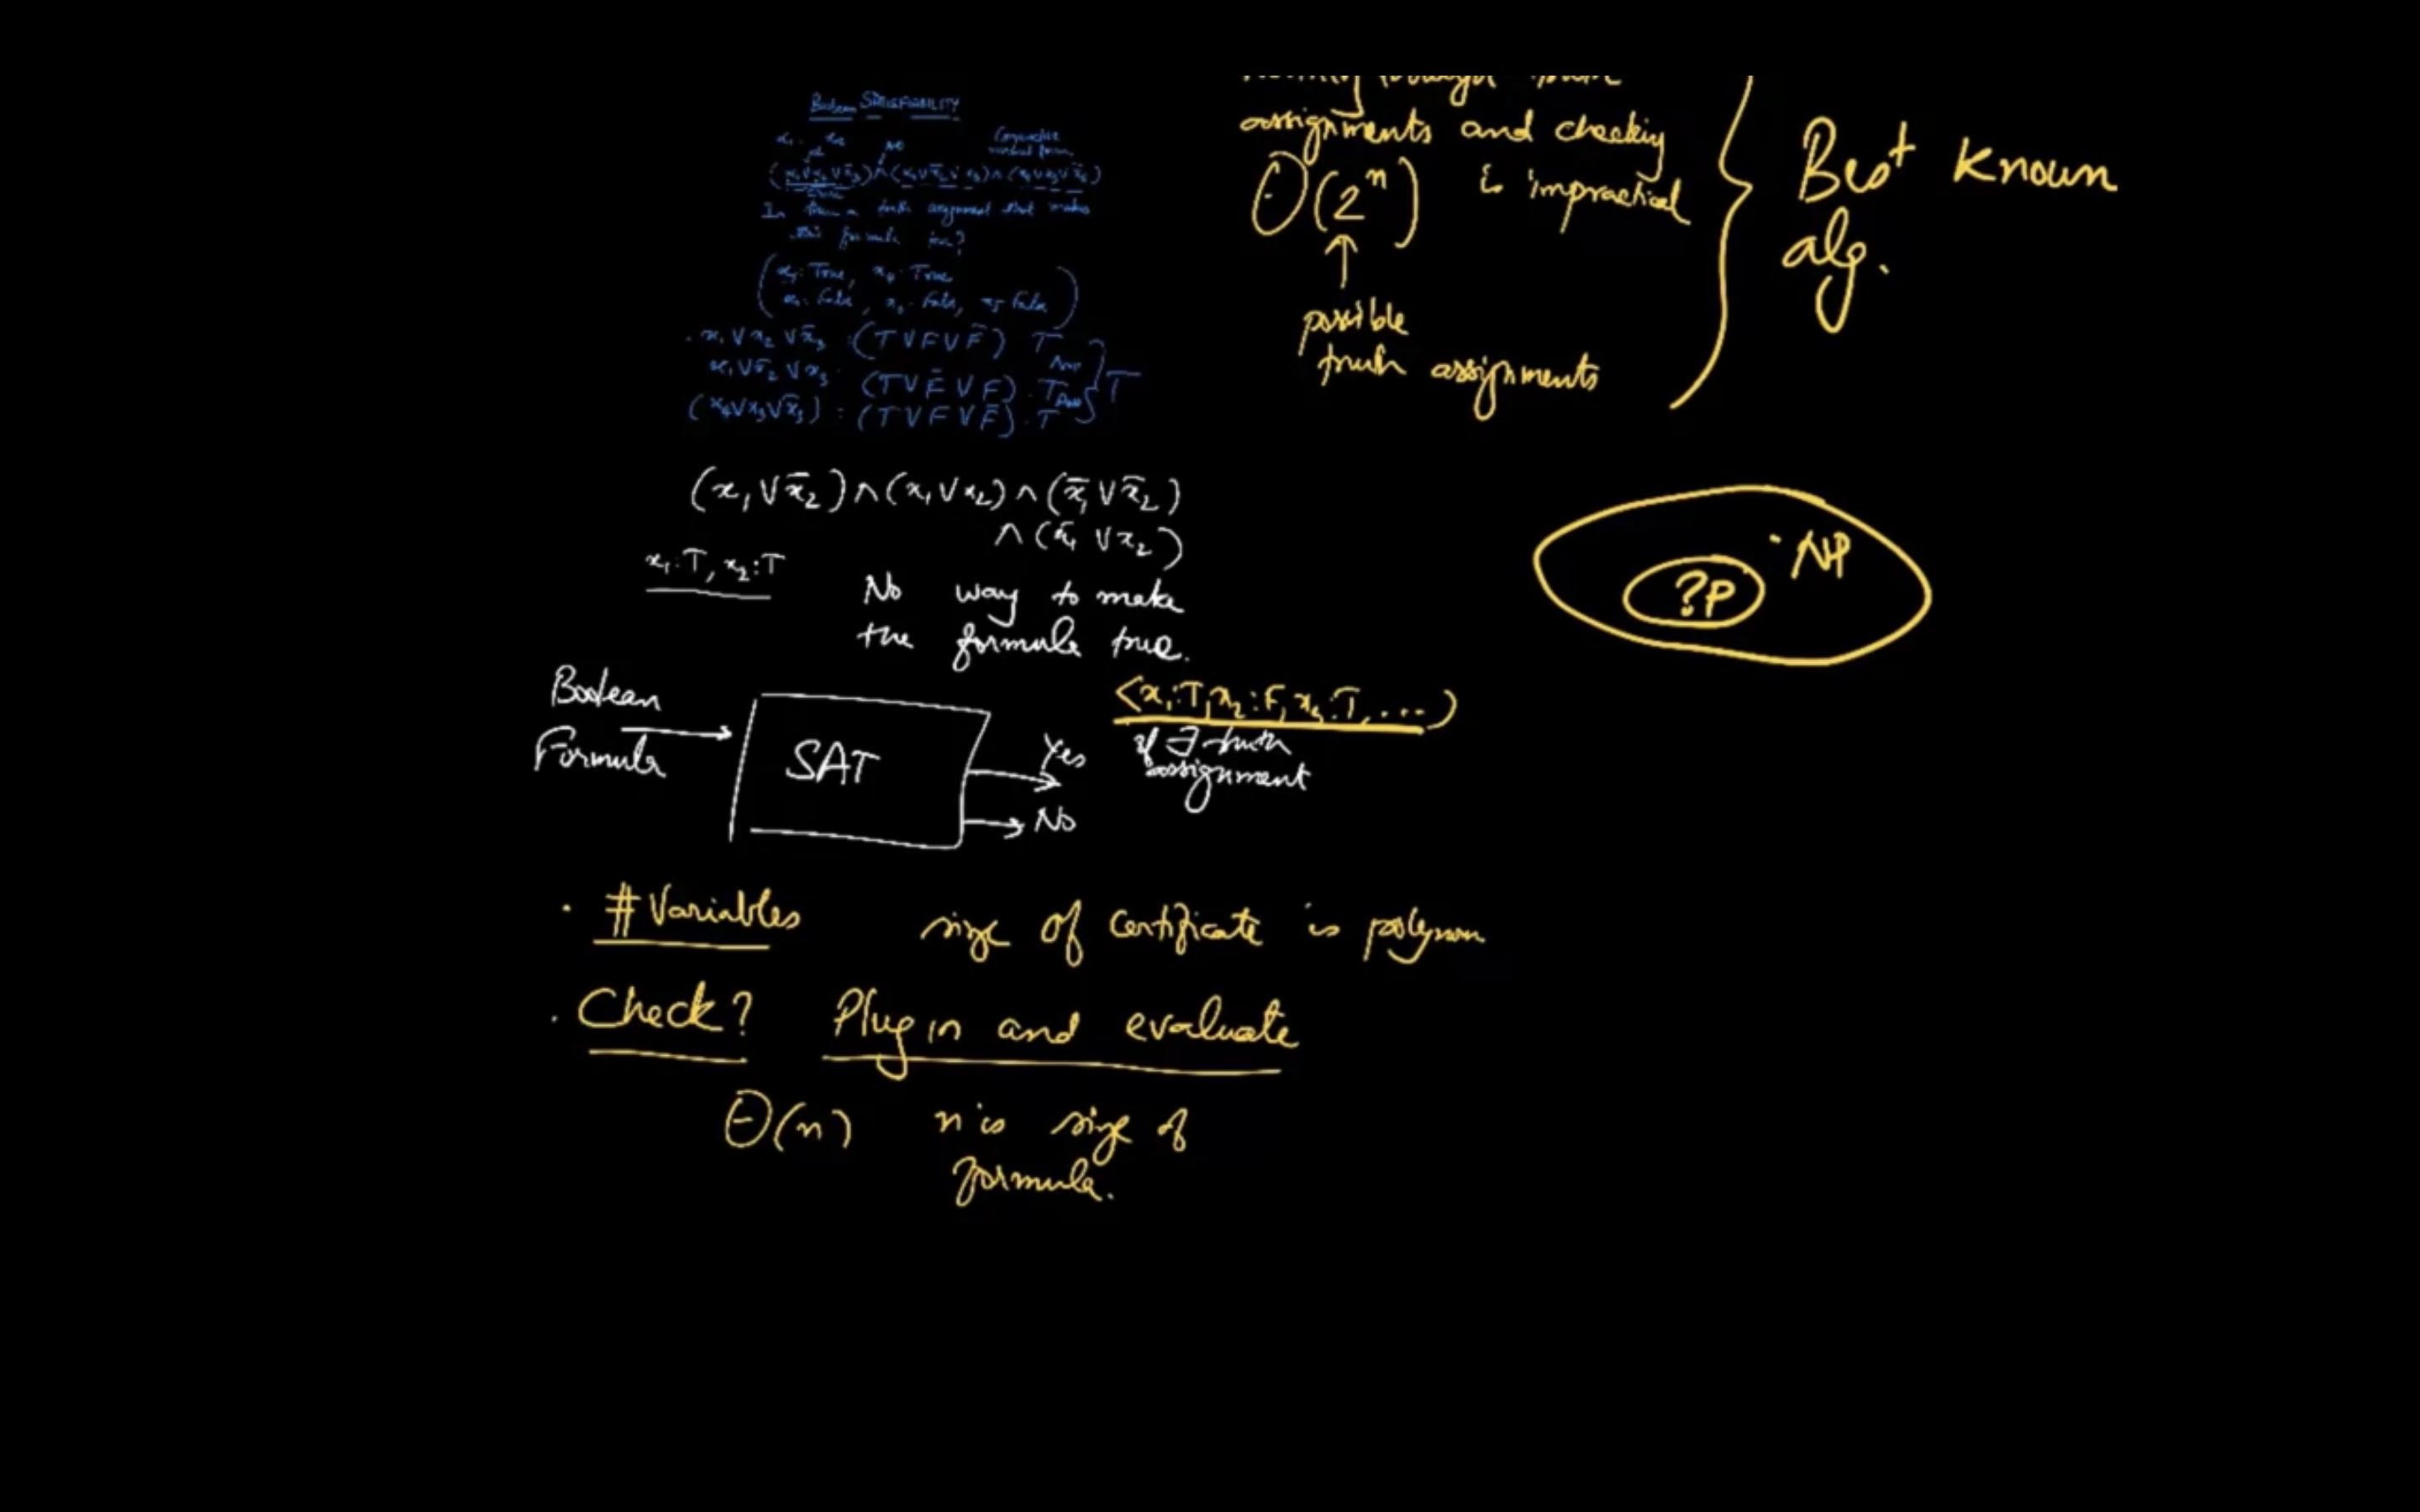 Boolean SATISFIABILITY
(x₁ ∨ x₂ ∨ x̄₃) ∧ (x₁ ∨ x̄₂ ∨ x₃) ∧ (x₄ ∨ x₃ ∨ x̄₅)
truth assignment that makes
this formula true?
x₁: True, x₄: True
False, False, x₅: False
x₁ ∨ x₂ ∨ x̄₃ : (T ∨ F ∨ F̄) T
x₁ ∨ x̄₂ ∨ x₃ : (T ∨ F̄ ∨ F) . T } T
(T ∨ F ∨ F̄) . T
(x₁ ∨ x̄₂) ∧ (x₁ ∨ x₂) ∧ (x̄₁ ∨ x̄₂)
∧ (x̄₁ ∨ x₂)
x₁:T, x₂:T
No way to make
the formula true.
Boolean
Formula
SAT
Yes
No
<x₁:T, x₂:F, x₃:T, ....)
if ∃ truth
assignment
. # Variables size of certificate is polynom
. Check? Plug in and evaluate
Θ(n) n is size of
formula.
assignments and checking
Θ(2ⁿ) is impractical
possible
truth assignments
Best Known
alg.
. NP
?P